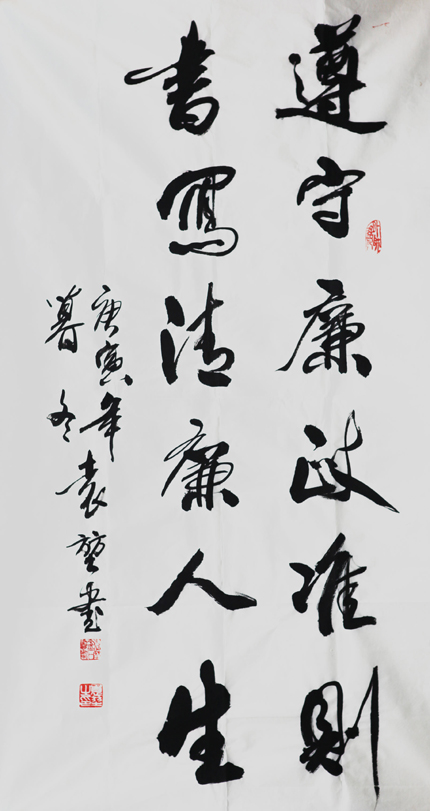 遵守廉政准则
書寫清廉人生
庚寅年
暮冬袁堃書